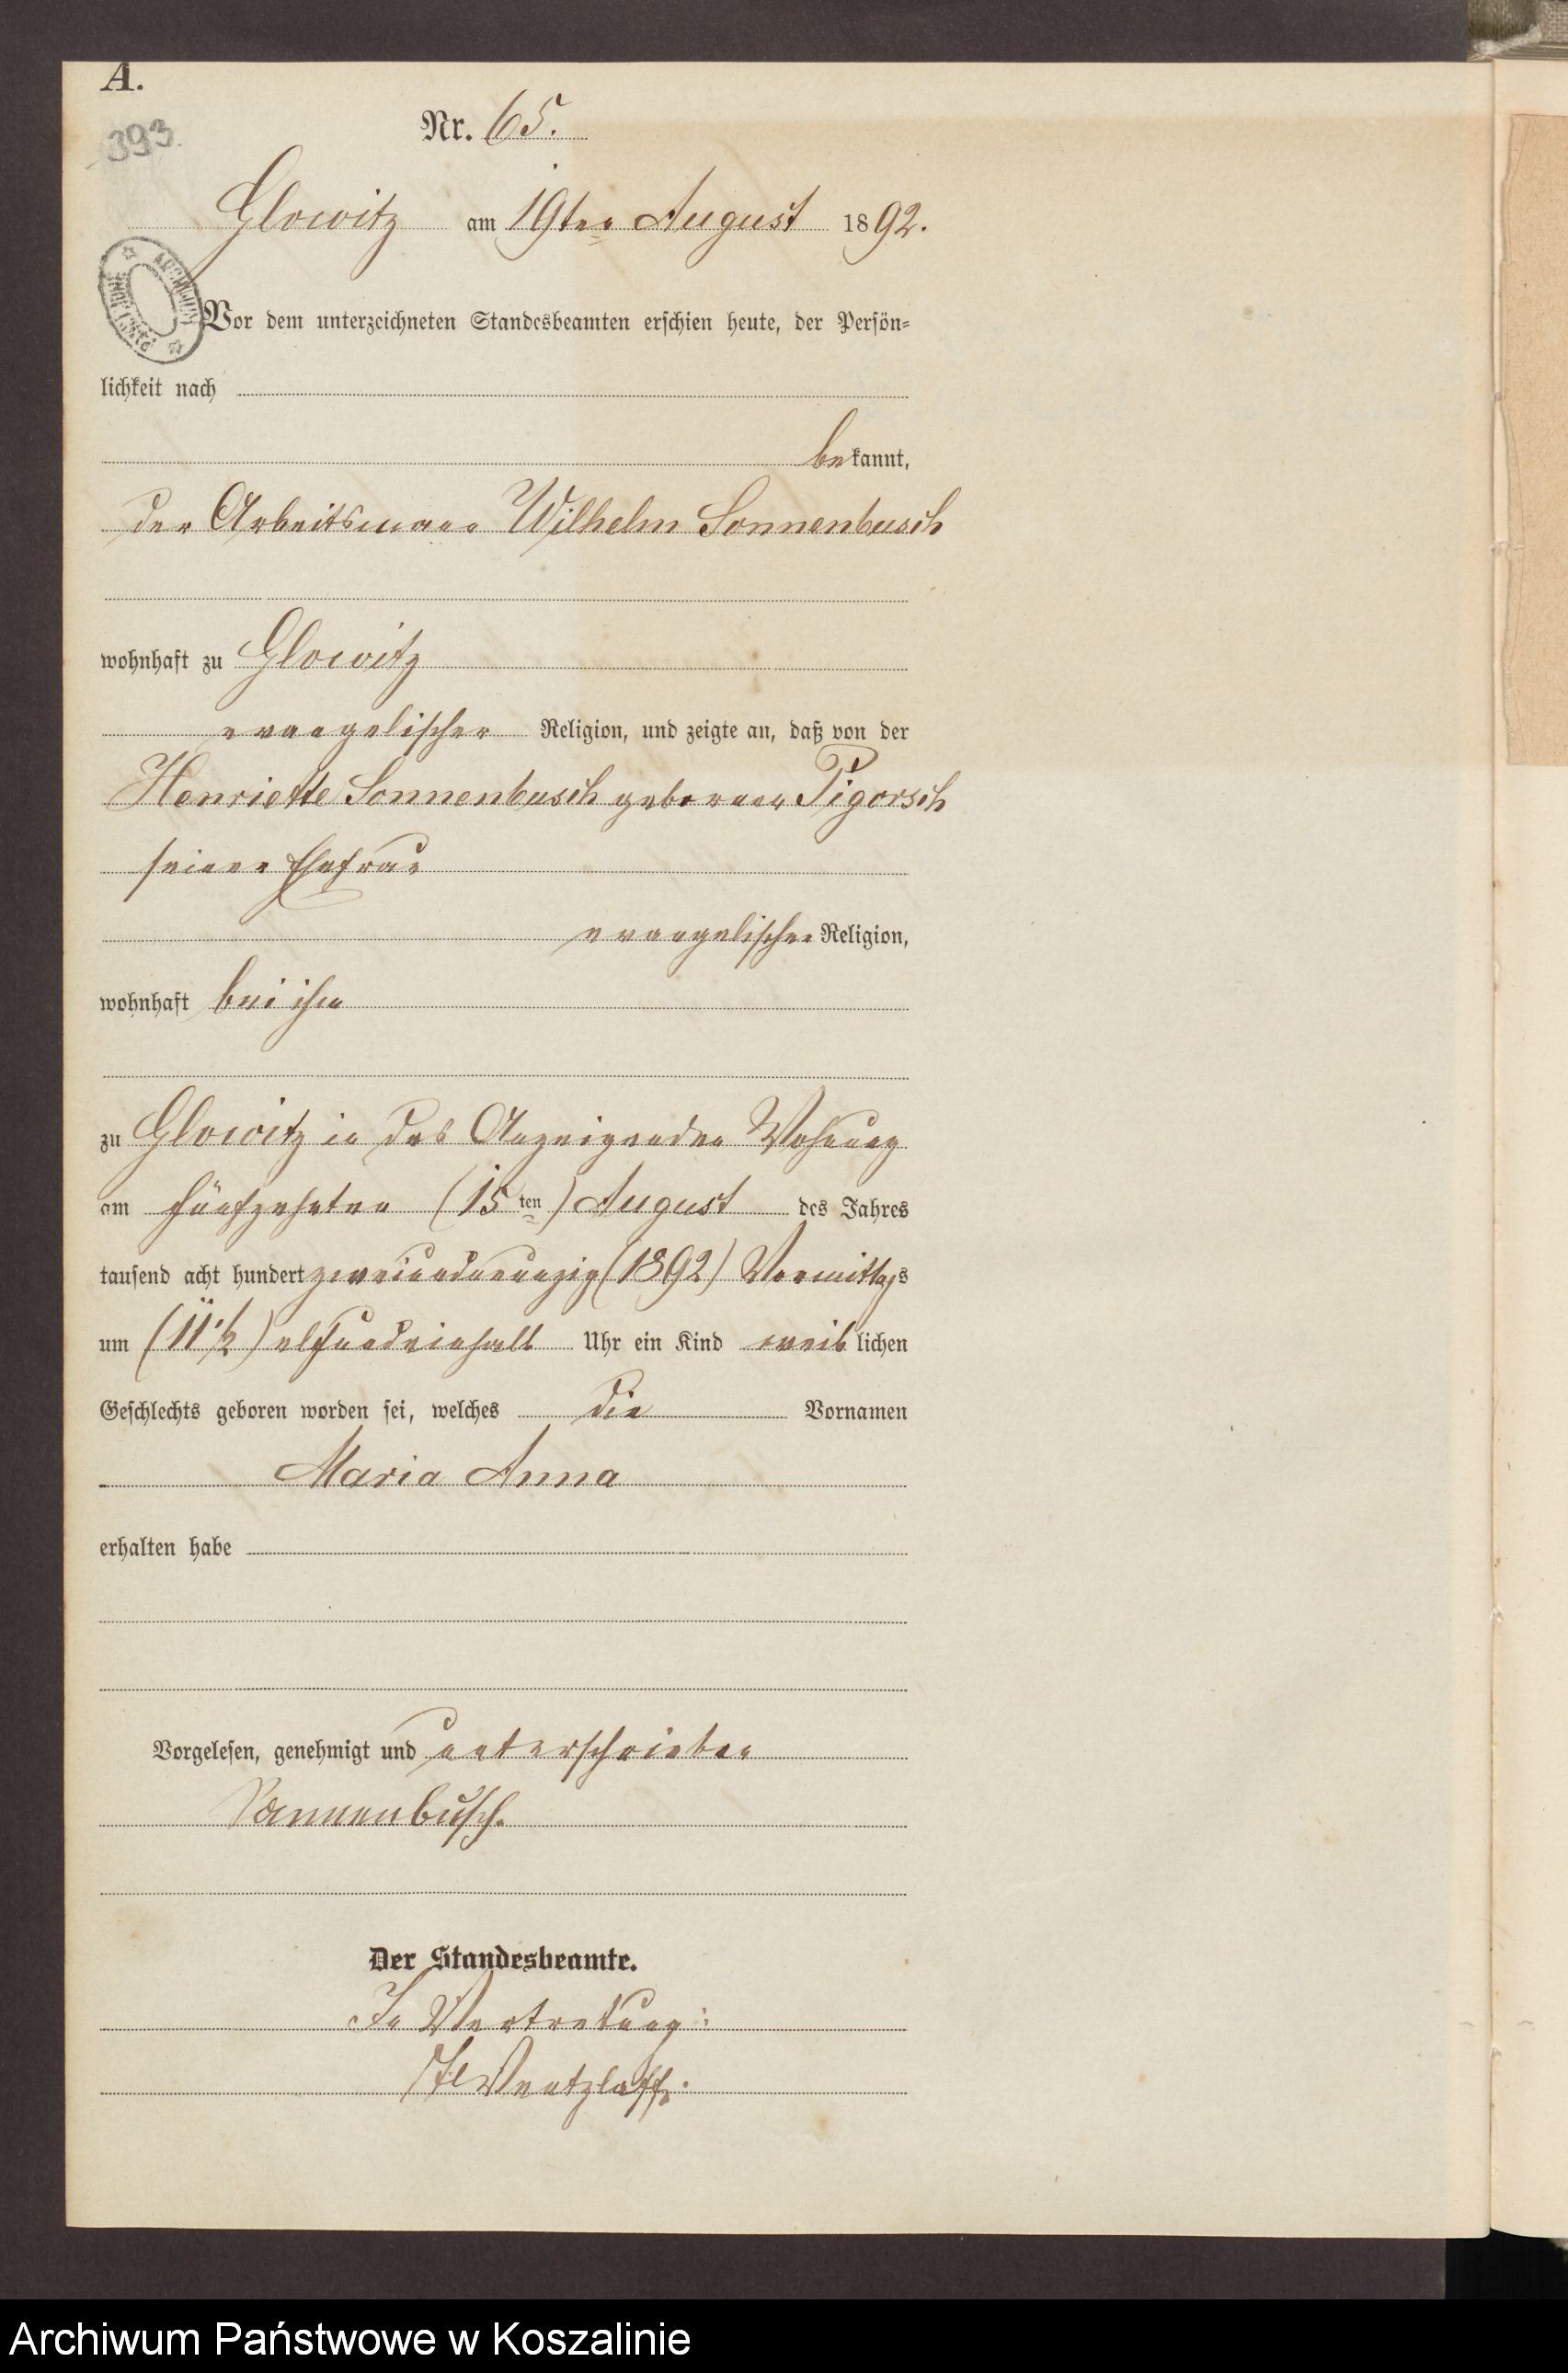 A.
393.
Nr. 65.
Glowitz am 19ten August 1892.
ARCHIWUM
Vor dem unterzeichneten Standesbeamten erschien heute, der Persön-
lichkeit nach
bekannt,
der Arbeitsmann Wilhelm Sonnenbusch
wohnhaft zu Glowitz
evangelischer Religion, und zeigte an, daß von der
Henriette Sonnenbusch geborenen Pigorsch
seiner Ehefrau
evangelischer Religion,
wohnhaft bei ihm
zu Glowitz in des Anzeigenden Wohnung
am fünfzehnten (15ten) August des Jahres
tausend acht hundert zweiundneunzig (1892) Vormittags
um (11 1/2) elfundeinhalb Uhr ein Kind weiblichen
Geschlechts geboren worden sei, welches die Vornamen
Maria Anna
erhalten habe
Vorgelesen, genehmigt und unterschrieben
Sonnenbusch.
Der Standesbeamte.
In Vertretung:
Wentzlaff.
Archiwum Państwowe w Koszalinie